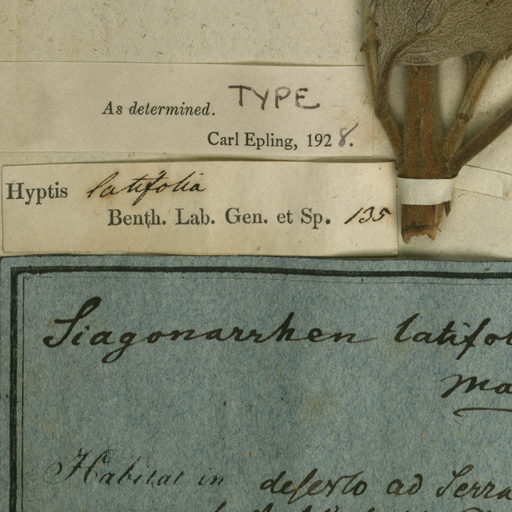 As determined. TYPE
Carl Epling, 1928.
Hyptis latifolia
Benth. Lab. Gen. et Sp. 135
Siagonarrhen latifol
Ma
Habitat in deserto ad Serra